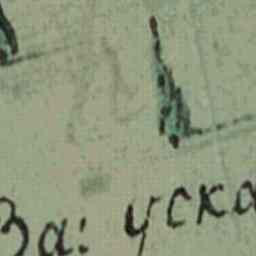 За: уска